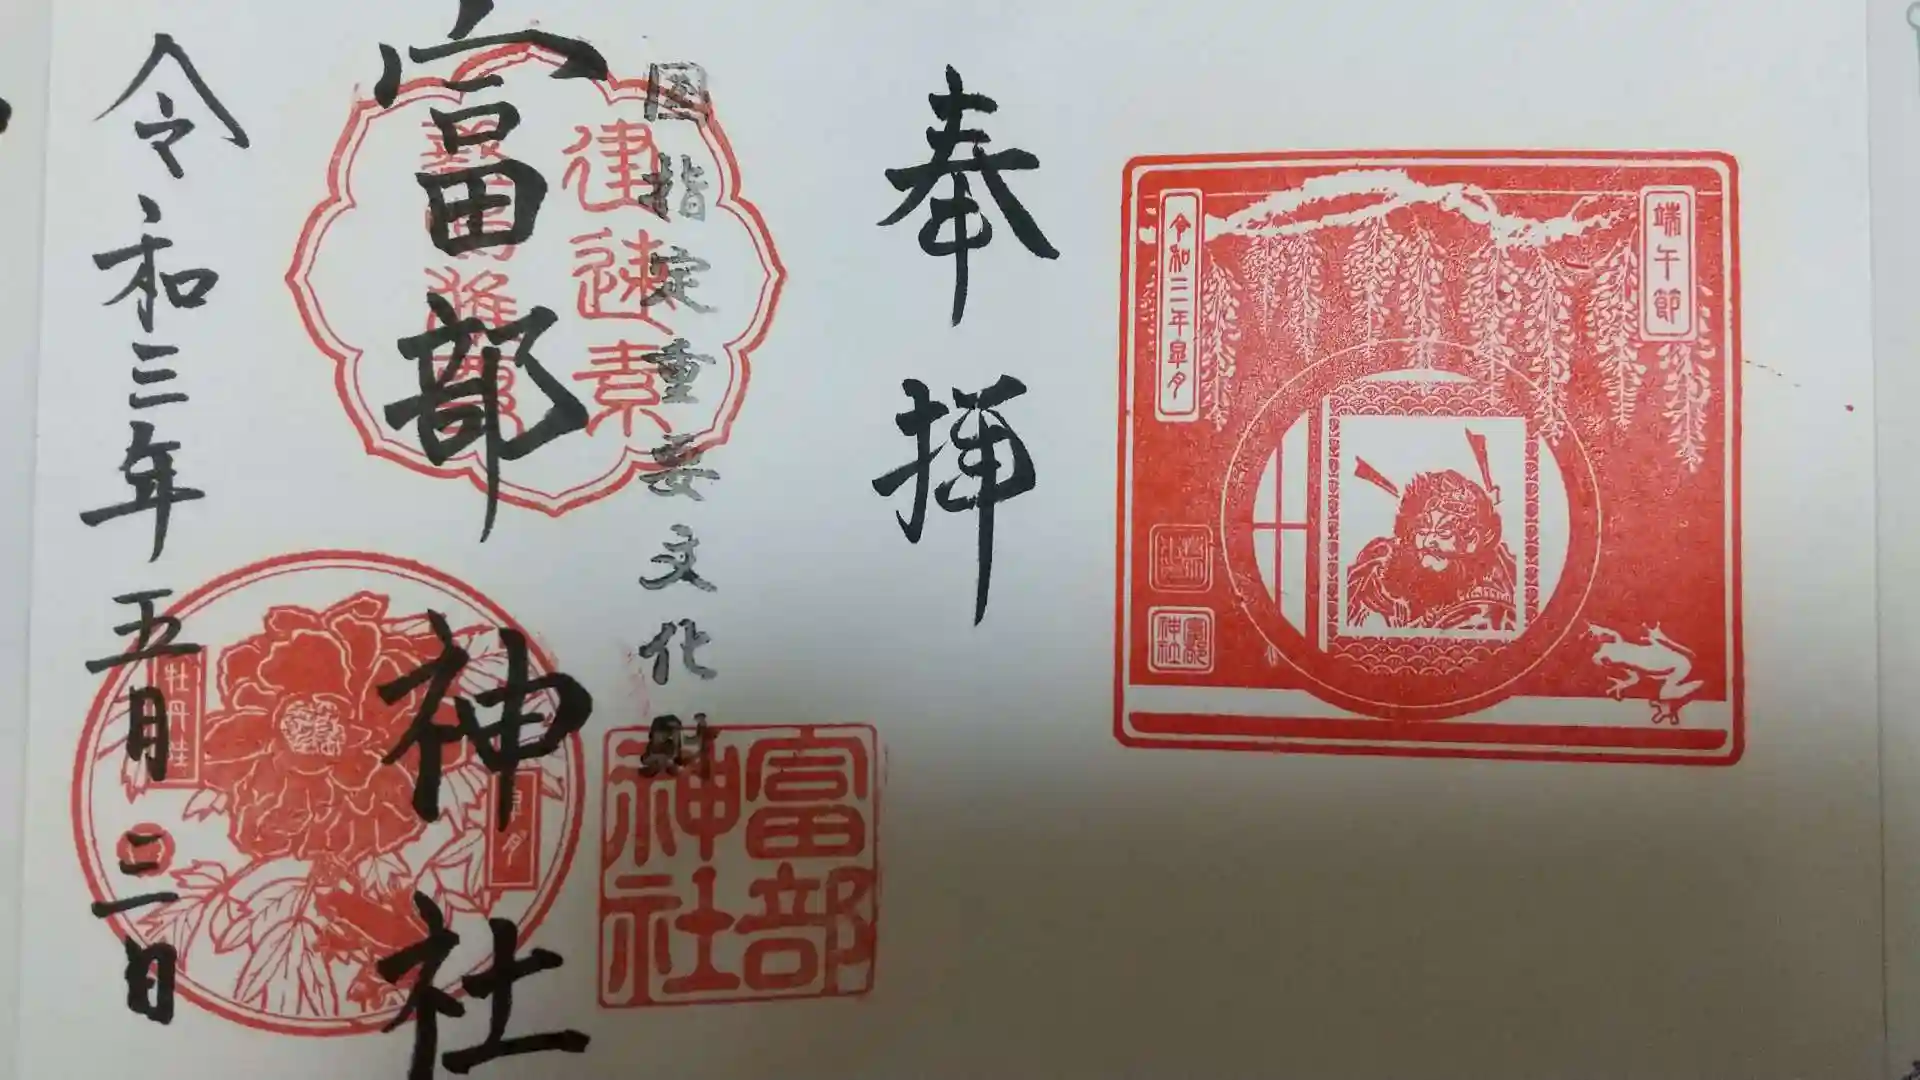 端午節
令和三年皐月
富部
神社
奉拝
国指定重要文化財
建速素
富部神社
富部
神社
令和三年五月二日
牡丹